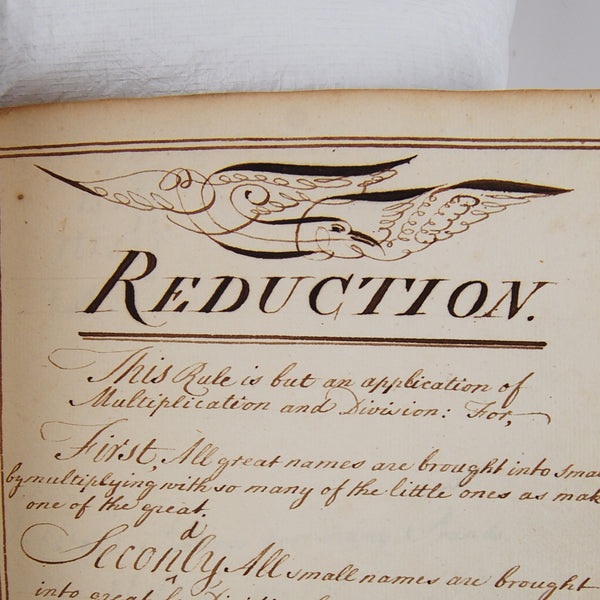 REDUCTION.
This Rule is but an application of
Multiplication and Division: For,
First, All great names are brought into smal
by multiplying with so many of the little ones as mak
one of the great.
Seconly All small names are brought
d
into great by Division